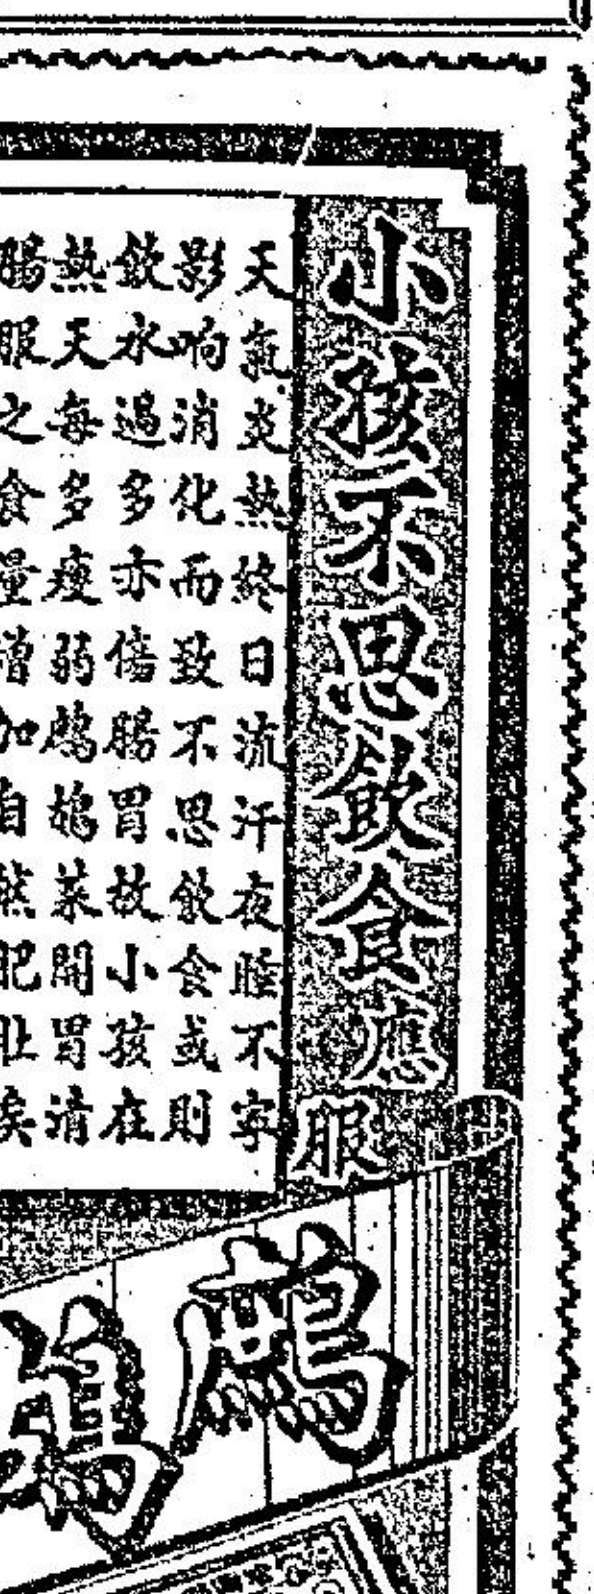 小孩不思飲食應服
天氣炎熱終日流汗夜睡不寧
影响消化而致不思飲食或則
飲水過多亦傷腸胃故小孩在
熱天每多瘦弱鷓鴣菜開胃清
腸服之食量增加自然肥壯矣
鷓鴣